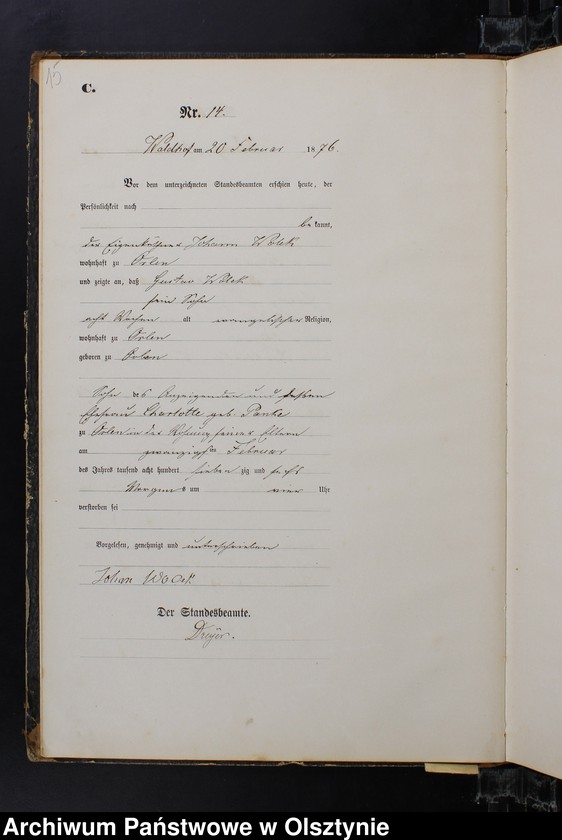 15
C.
Nr. 14.
Waldhof am 20 Februar 1876.
Vor dem unterzeichneten Standesbeamten erschien heute, der
Persönlichkeit nach
bekannt,
der Eigenkäthner Johann Wolek
wohnhaft zu Orlen
und zeigte an, daß Gustav Wolek
sein Sohn
acht Wochen alt evangelischer Religion,
wohnhaft zu Orlen
geboren zu Orlen
Sohn des Anzeigenden und dessen
Ehefrau Charlotte geb.
zu Orlen in der Wohnung seiner Eltern
am zwanzigsten Februar
des Jahres tausend acht hundert siebenzig und sechs
Morgens um vier Uhr
verstorben sei
Vorgelesen, genehmigt und unterschrieben
Johan
Der Standesbeamte.
Dreÿer.
Archiwum Państwowe w Olsztynie